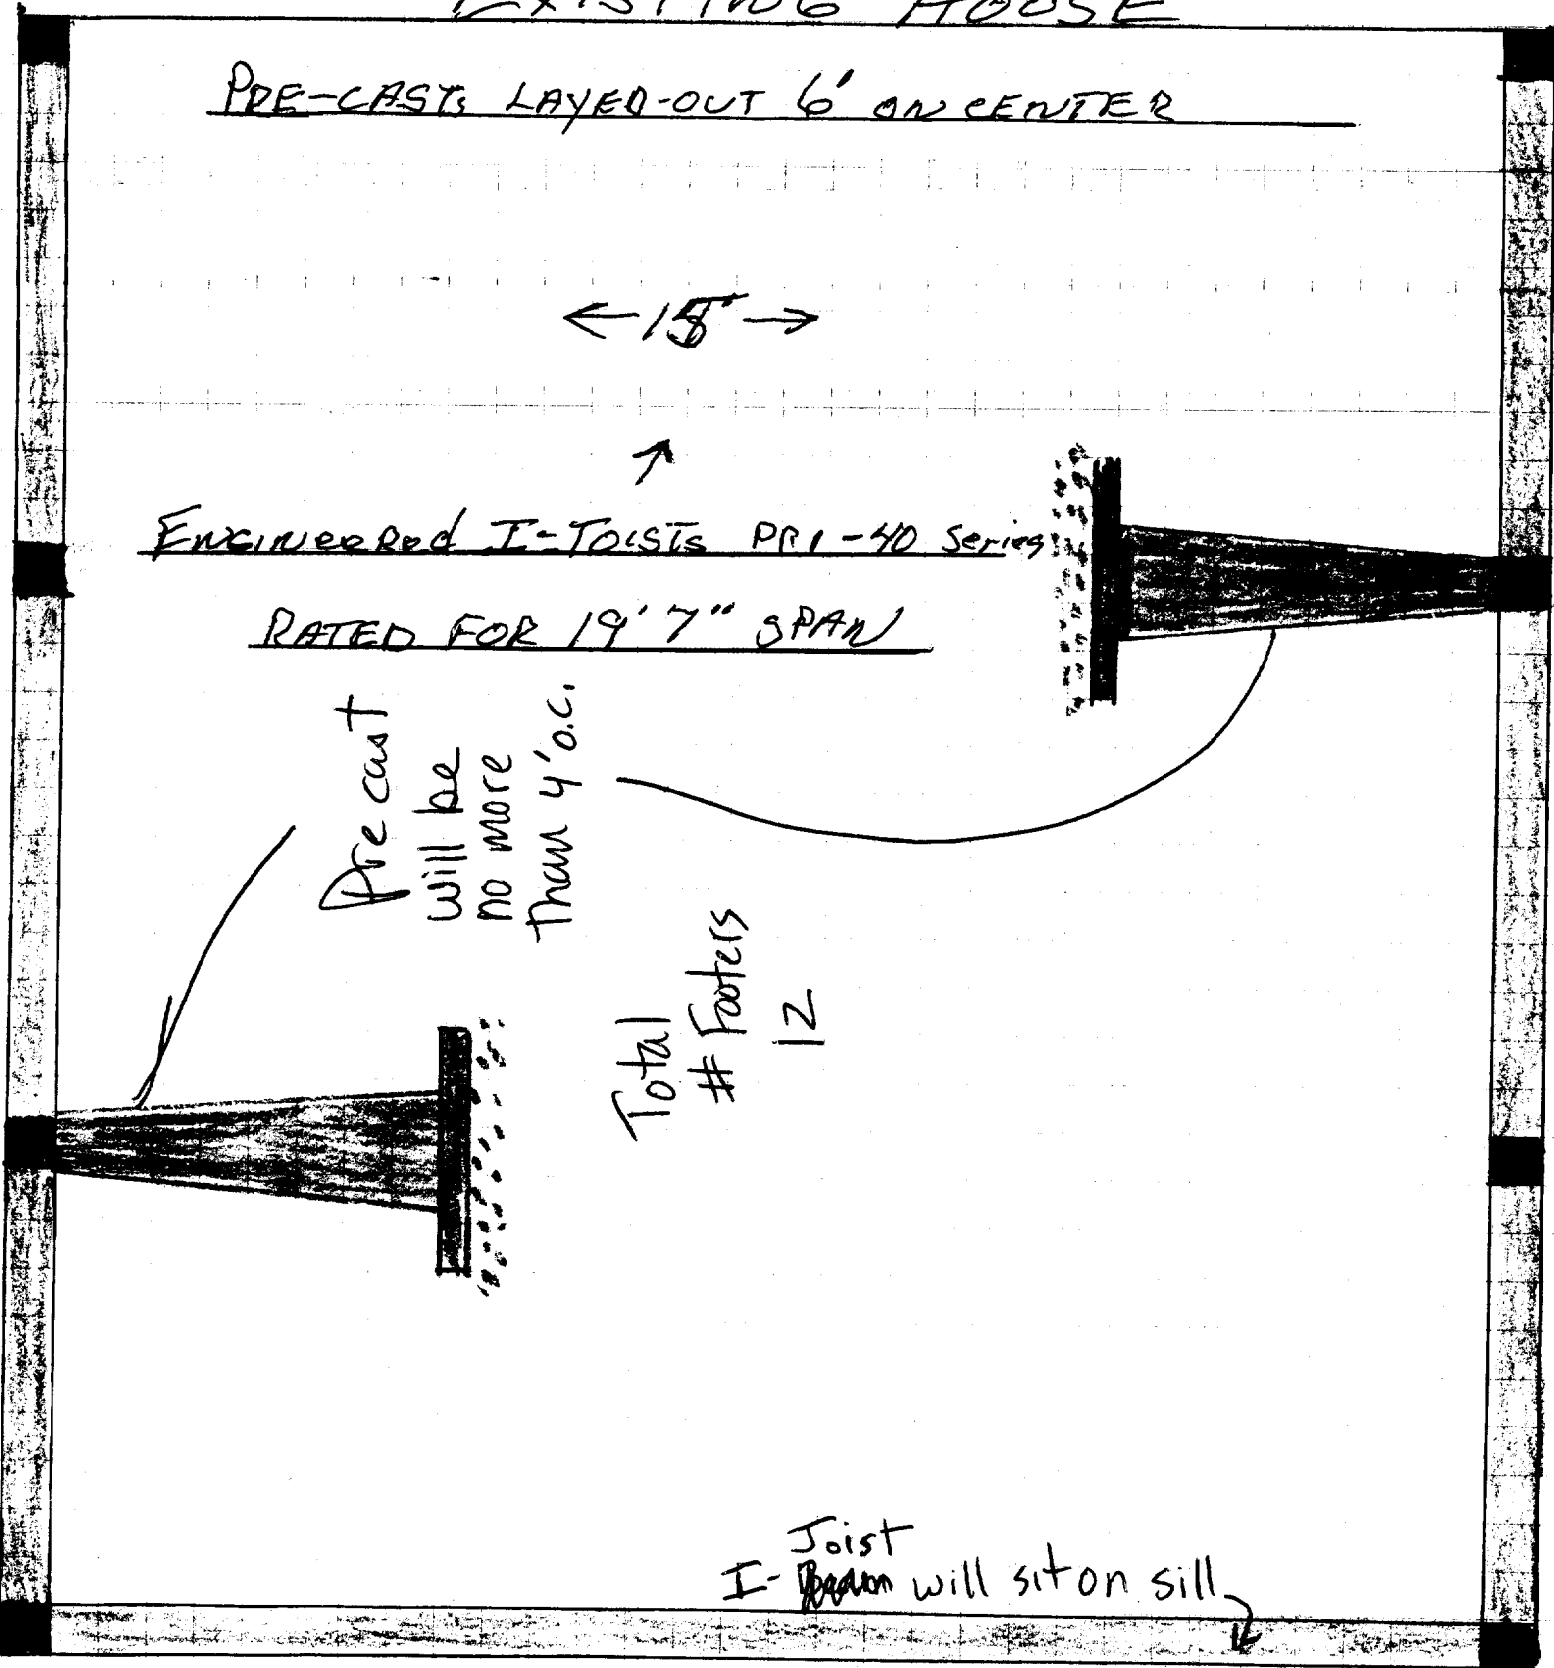 EXISTING HOUSE
PRE-CASTS LAYED-OUT 6' ON CENTER
Engineered I-Joists PRI-40 Series
RATED FOR 19' 7" SPAN
Pre cast
will be
no more
Than 4' o.c.
Total
# Footers
12
Joist
I- will sit on sill